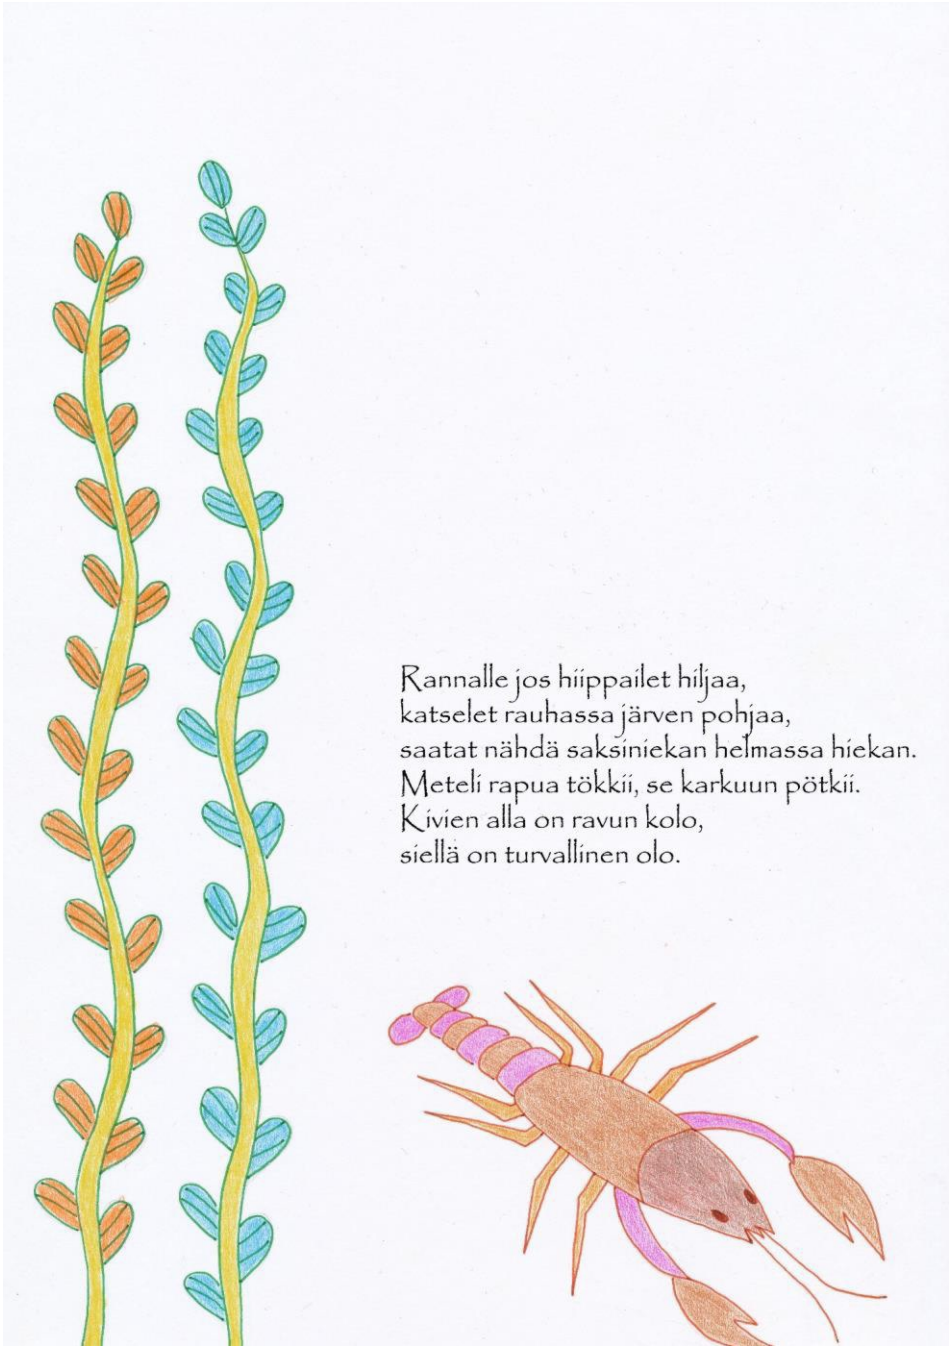 Rannalle jos hiippailet hiljaa,
katselet rauhassa järven pohjaa,
saatat nähdä saksiniekan helmassa hiekan.
Meteli rapua tökkii, se karkuun pötkii.
Kivien alla on ravun kolo,
siellä on turvallinen olo.